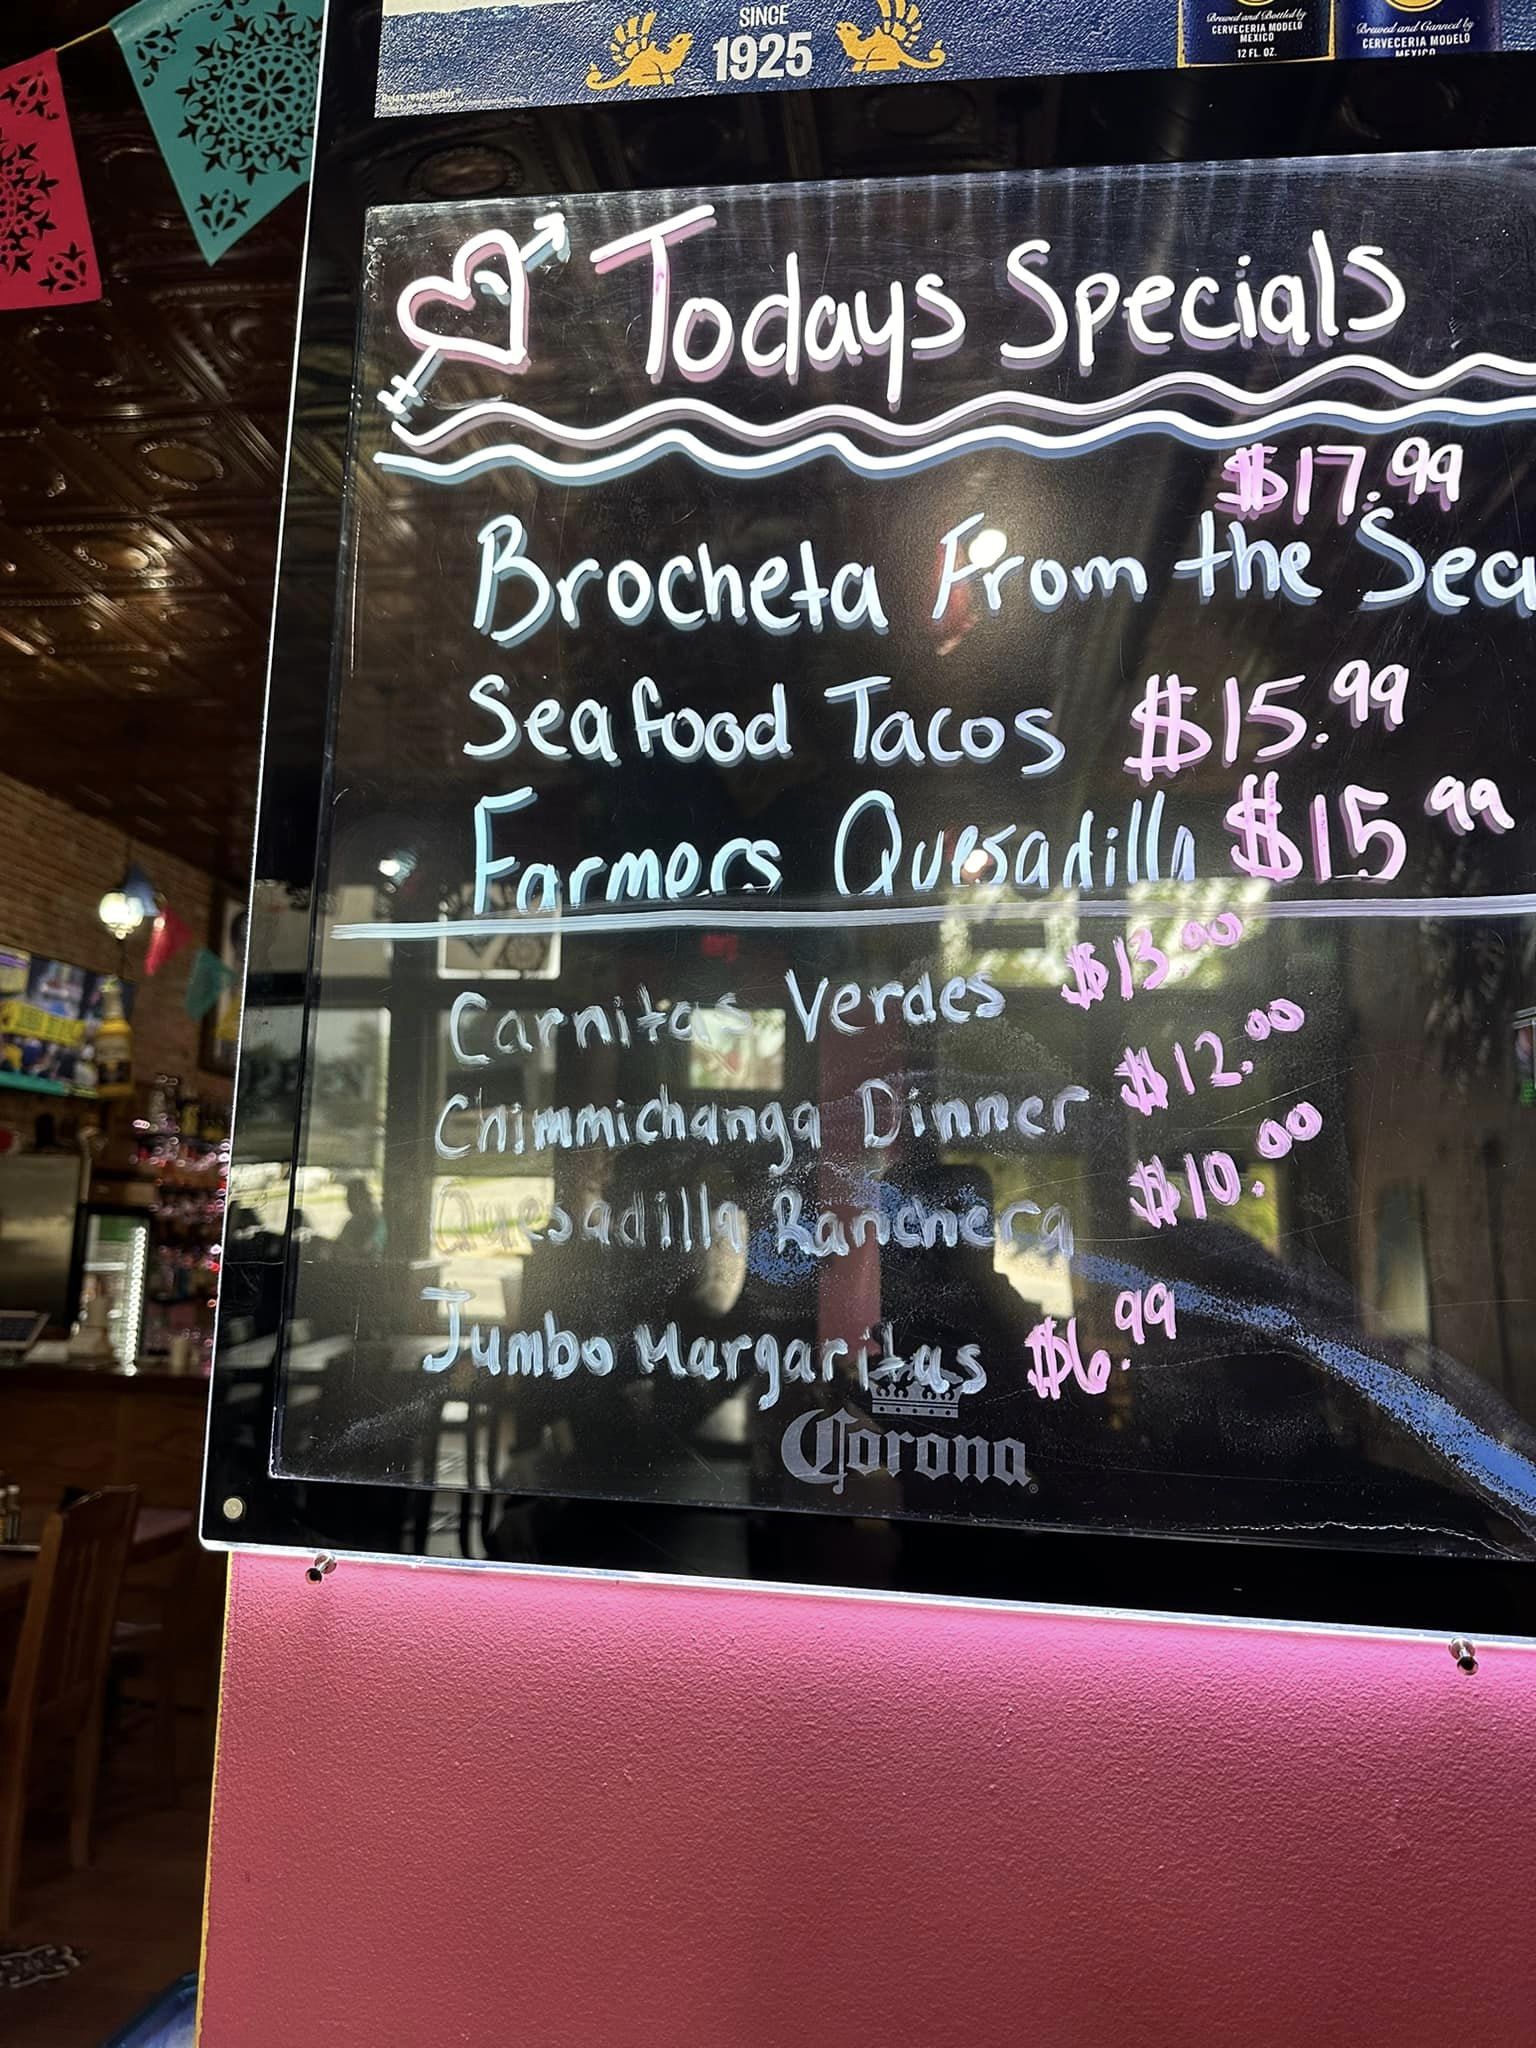 SINCE
1925
Relax responsibly
Brewed and Bottled by
CERVECERIA MODELO
MEXICO
12 FL. OZ.
Brewed and Canned by
CERVECERIA MODELO
MEXICO
Todays Specials
$17.99
Brocheta From the Sea
Seafood Tacos $15.99
Farmers Quesadilla $15 99
Carnitas Verdes $13.00
Chimmichanga Dinner $12.00
Quesadilla Ranchera $10.00
Jumbo Margaritas $6.99
Corona